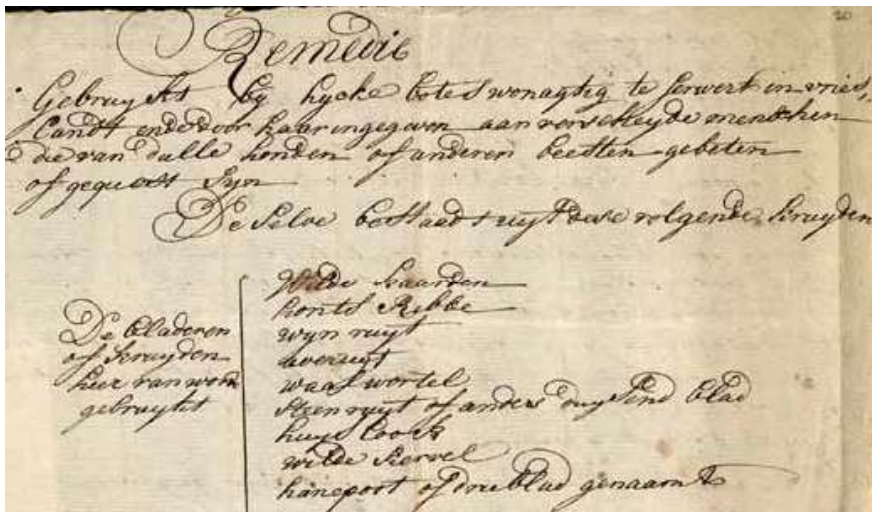 20
Remedie
Gebruykt by hycke botes wonagtig te ferwert in vries,
Landt ende door haar ingegeven aan verscheyde menschen
die van dulle honden of anderen beesten gebeten
of gequest syn
De selve bestaadt uyt dese volgende kruyden
De bladeren
of kruyden
hier van word
gebruykt
Wilde kaarden
honts Ribbe
wyn ruyt
averuyt
waal wortel
steen ruyt of anders duysend blad
huys loock
wilde kervel
hanepoot of drieblad genaamt